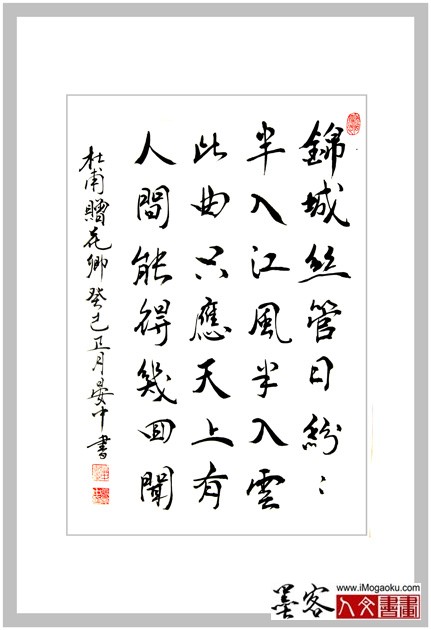 錦城絲管日紛〻
半入江風半入雲
此曲只應天上有
人間能得幾回聞
杜甫贈花卿癸巳正月晏中書
墨客
www.iMogaoku.com
人文書畫